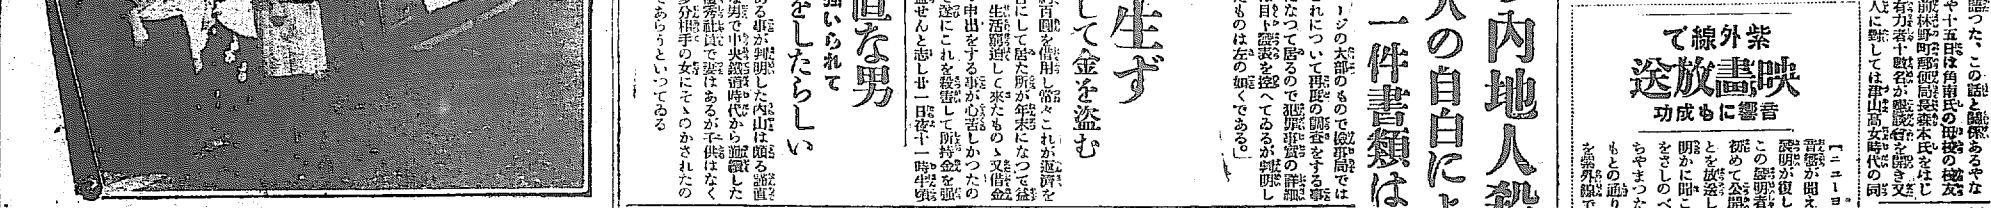 語つた、この話と關係あるやな
や十五日は角南氏の母校の校友
前林野町郵便局長森本氏をはじ
有力者十數名が懇談會を開き又
人に對しては津山高女時代の同
紫外線で
映畫放送
音響にも成功
【ニューヨ
音響が聞え
展明が復し
この發明者
初めて公開
とを放送し
明かに聞こ
をさしのべ
ちやまつた
もとの通り
を紫外線で
内地人殺
人の自白によ
一件書類は
ージの大部のもので檢事局では
れについて再度の調査をする事
なつて居るので犯罪事實の詳細
は目下發表を控へてゐるが判明し
たものは左の如くである。
生ず
して金を盜む
百圓を借用し常々これが返濟を
にして居た所が年末になつて益
生活窮迫して來たもの又借金
申出をする事が心苦しかつたの
遂にこれを殺害して所持金を强
盜せんと志し廿一日夜十一時半頃
直な男
强いられて
をしたらしい
ある事が判明した内山は頗る謹直
な男で中央鐵道時代から勤續した
優秀社員で妻はあるが子供はなく
多分相手の女にそゝのかされたの
であらうといつてゐる